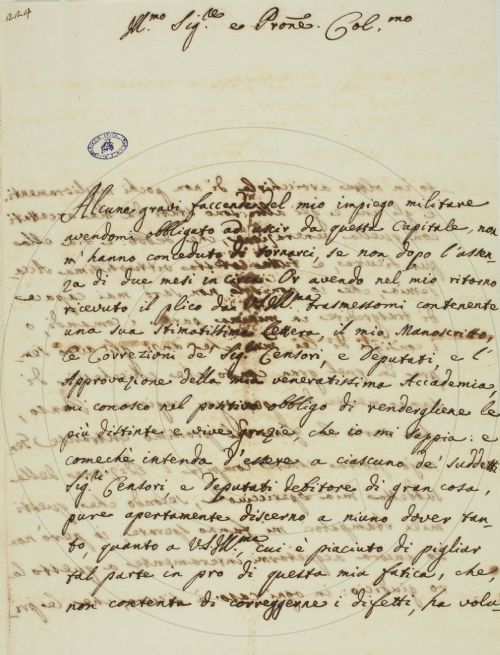 224
Ill.mo Sig.re e Prone. Col.mo
Alcune gravi faccende del mio impiego militare
avendomi obbligato ad uscir da questa Capitale, non
m'hanno conceduto di tornarci, se non dopo l'assen-
za di due mesi in circa. Or avendo nel mio ritorno
ricevuto il plico da VSIllma trasmessomi contenente
una sua stimatissima Lettera, il mio Manoscritto,
le Correzioni de' Sig.i Censori, e Deputati, e l'
Approvazione della mia veneratissima Accademia,
mi conosco nel positivo obbligo di rendergliene le
più distinte e vive grazie, che io mi sappia: e
comechè intenda d'essere a ciascuno de' suddetti
Sig.ri Censori e Deputati debitore di gran cosa,
pure apertamente discerno a niuno dover tan-
to, quanto a VSIllma, cui è piaciuto di pigliar
tal parte in pro di questa mia fatica, che
non contenta di correggerne i difetti, ha volu-